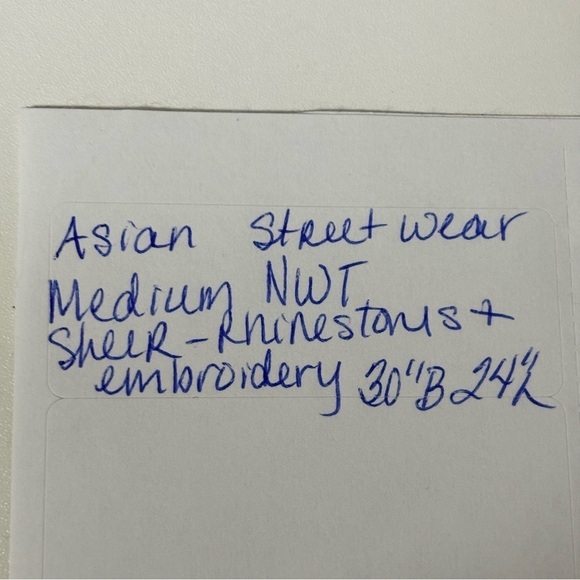 Asian Street Wear
Medium NWT
Sheer - Rhinestones +
embroidery 30"B 24"L